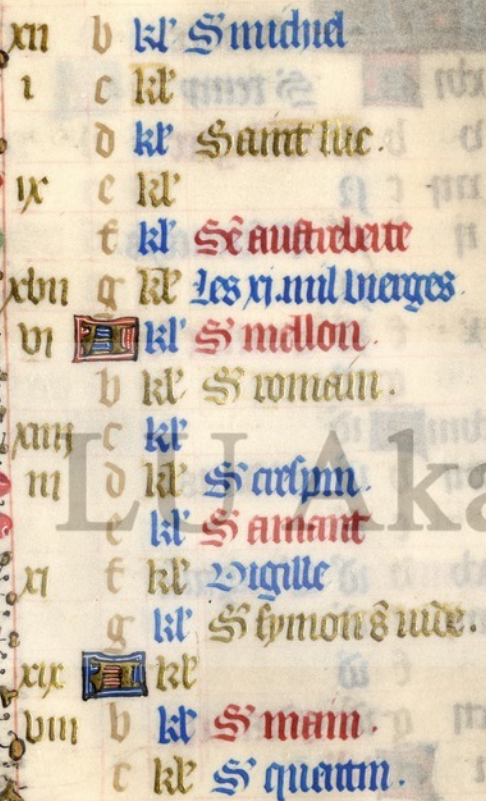 xii b kl' S' michiel
i c kl'
d kl' Saint luc.
ix e kl'
f kl' Sē austreberte
xvii g kl' Les xi. mil vierges.
vi A kl' S' mellon.
b kl' S' romain.
xiiij c kl'
iij d kl' S' crespin.
e kl' S' amant
xi f kl' Vigille
g kl' S' symon & iude.
xix A kl'
viii b kl' S' main.
c kl' S' quentin.
LU Aka